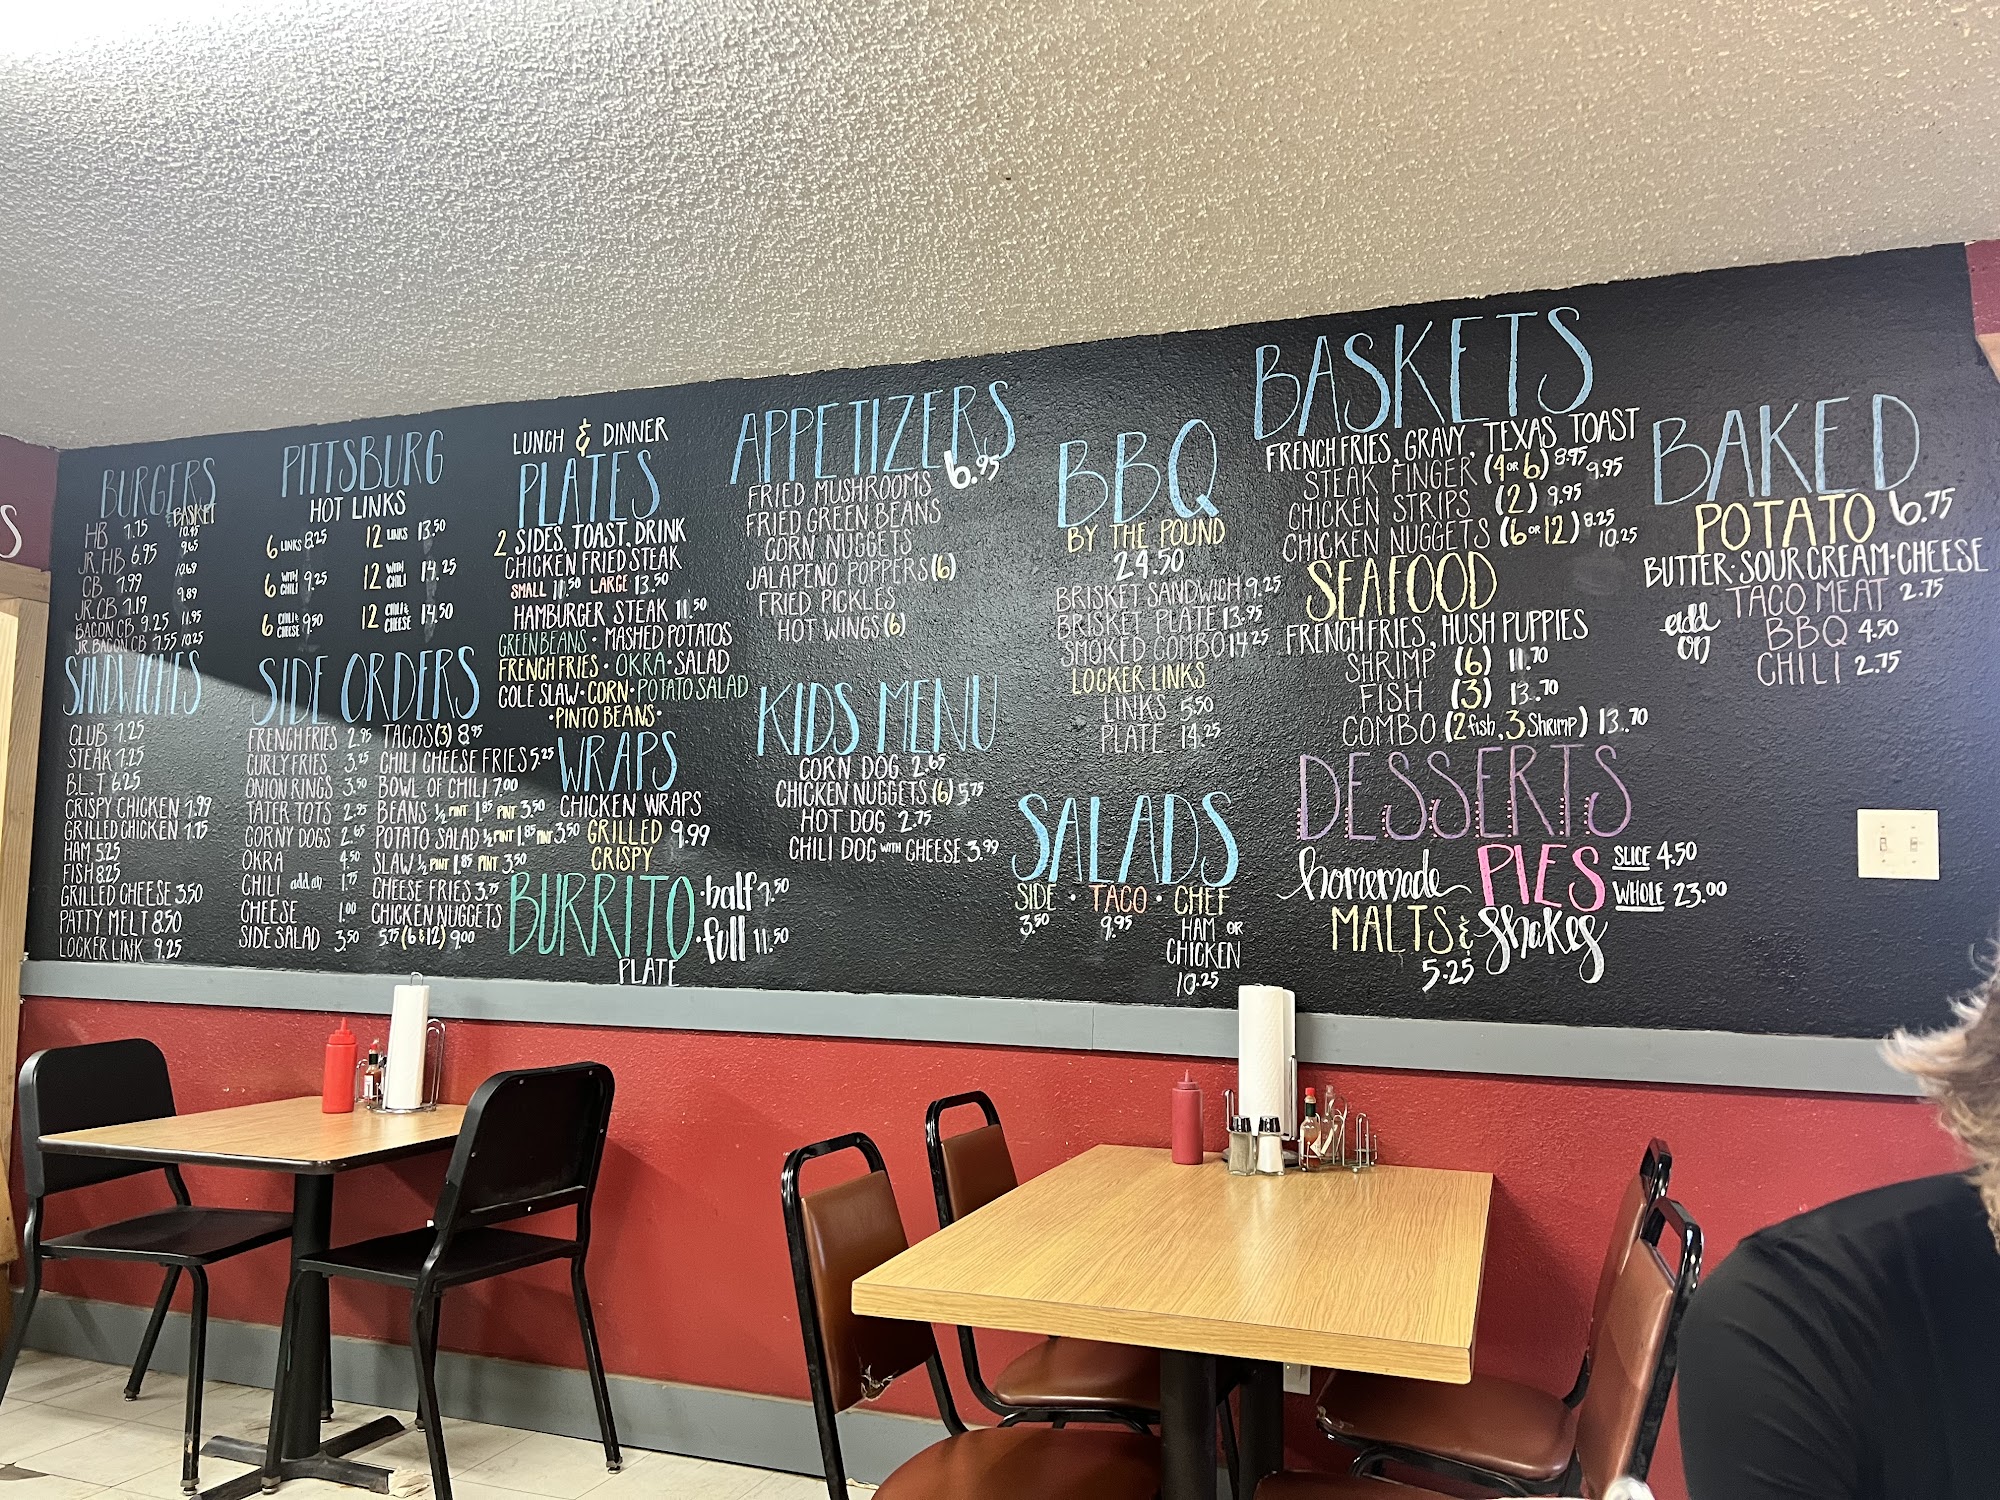 S
BURGERS
& BASKET
HB 7.75 10.45
JR. HB 6.95 9.65
CB 7.99 10.69
JR. CB 7.19 9.89
BACON CB 9.25 11.95
JR. BACON CB 7.55 10.25
SANDWICHES
CLUB 7.25
STEAK 7.25
B.L.T 6.25
CRISPY CHICKEN 7.99
GRILLED CHICKEN 7.75
HAM 5.25
FISH 8.25
GRILLED CHEESE 3.50
PATTY MELT 8.50
LOCKER LINK 9.25
PITTSBURG
HOT LINKS
6 LINKS 8.25 12 LINKS 13.50
6 WITH CHILI 9.25 12 WITH CHILI 14.25
6 CHILI & CHEESE 9.50 12 CHILI & CHEESE 14.50
SIDE ORDERS
FRENCH FRIES 2.95
CURLY FRIES 3.25
ONION RINGS 3.50
TATER TOTS 2.95
CORNY DOGS 2.65
OKRA 4.50
CHILI add on 1.75
CHEESE 1.00
SIDE SALAD 3.50
TACOS (3) 8.95
CHILI CHEESE FRIES 5.25
BOWL OF CHILI 7.00
BEANS ½ PINT 1.85 PINT 3.50
POTATO SALAD ½ PINT 1.85 PINT 3.50
SLAW ½ PINT 1.85 PINT 3.50
CHEESE FRIES 3.75
CHICKEN NUGGETS
5.75 (6 & 12) 9.00
LUNCH & DINNER
PLATES
2 SIDES, TOAST, DRINK
CHICKEN FRIED STEAK
SMALL 11.50 LARGE 13.50
HAMBURGER STEAK 11.50
GREEN BEANS · MASHED POTATOS
FRENCH FRIES · OKRA · SALAD
COLE SLAW · CORN · POTATO SALAD
· PINTO BEANS ·
WRAPS
CHICKEN WRAPS
GRILLED 9.99
CRISPY
BURRITO · half 7.50
· full 11.50
PLATE
APPETIZERS
6.95
FRIED MUSHROOMS
FRIED GREEN BEANS
CORN NUGGETS
JALAPENO POPPERS (6)
FRIED PICKLES
HOT WINGS (6)
KIDS MENU
CORN DOG 2.65
CHICKEN NUGGETS (6) 5.75
HOT DOG 2.75
CHILI DOG WITH CHEESE 3.99
BBQ
BY THE POUND
24.50
BRISKET SANDWICH 9.25
BRISKET PLATE 13.95
SMOKED COMBO 14.25
LOCKER LINKS
LINKS 5.50
PLATE 14.25
SALADS
SIDE · TACO · CHEF
3.50 9.95 HAM OR
CHICKEN
10.25
BASKETS
FRENCH FRIES, GRAVY, TEXAS TOAST
STEAK FINGER (4 OR 6) 8.95 9.95
CHICKEN STRIPS (2) 9.95
CHICKEN NUGGETS (6 OR 12) 8.25 10.25
SEAFOOD
FRENCH FRIES, HUSH PUPPIES
SHRIMP (6) 11.70
FISH (3) 13.70
COMBO (2 fish, 3 Shrimp) 13.70
DESSERTS
homemade PIES SLICE 4.50
WHOLE 23.00
MALTS & Shakes
5.25
BAKED
POTATO 6.75
BUTTER · SOUR CREAM · CHEESE
add on
TACO MEAT 2.75
BBQ 4.50
CHILI 2.75